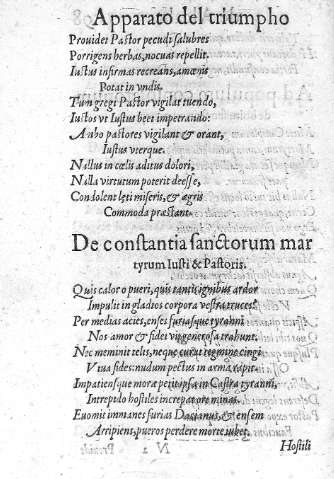 Apparato del triumpho
Prouidet Pastor pecudi salubres
Porrigens herbas, nocuas repellit.
Iustus infirmas recreans, amœnis
Potat in vndis.
Tum gregi Pastor vigilat tuendo,
Iustos vt Iustus beet impetrando:
Ambo pastores vigilant & orant,
Iustus vterque.
Nullus in cœlis aditus dolori,
Nulla virtutum poterit deesse,
Condolent lęti miseris, & ægris
Commoda præstant.
De constantia sanctorum mar
tyrum Iusti & Pastoris.
Quis calor o pueri, quis tantis ignibus ardor
Impulit in gladios corpora vestra truces?
Per medias acies, enses furiasque tyranni
Nos amor & fidei vis generosa trahunt.
Nec meminit telis, neque curat tegmine cingi
Vna fides: nudum pectus in arma rapit.
Impatiensque moræ petit ipsa in Castra tyranni,
Intrepido hostiles increpat ore minas.
Euomit immanes furias Dacianus, & ensem
Arripiens, pueros perdere morte iubet.
N 2 Hostili